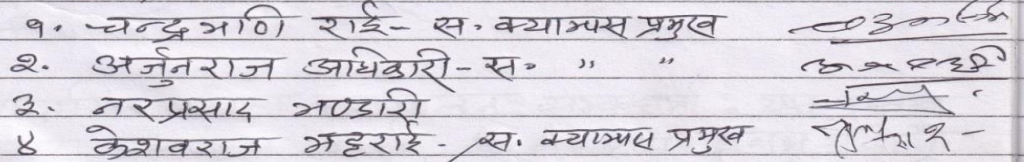 १. चन्द्रमणि राई - स. क्याम्पस प्रमुख
२. अर्जुनराज अधिकारी - स. " "
३. नर प्रसाद भण्डारी
४ केशवराज भट्टराई - स. क्याम्पस प्रमुख